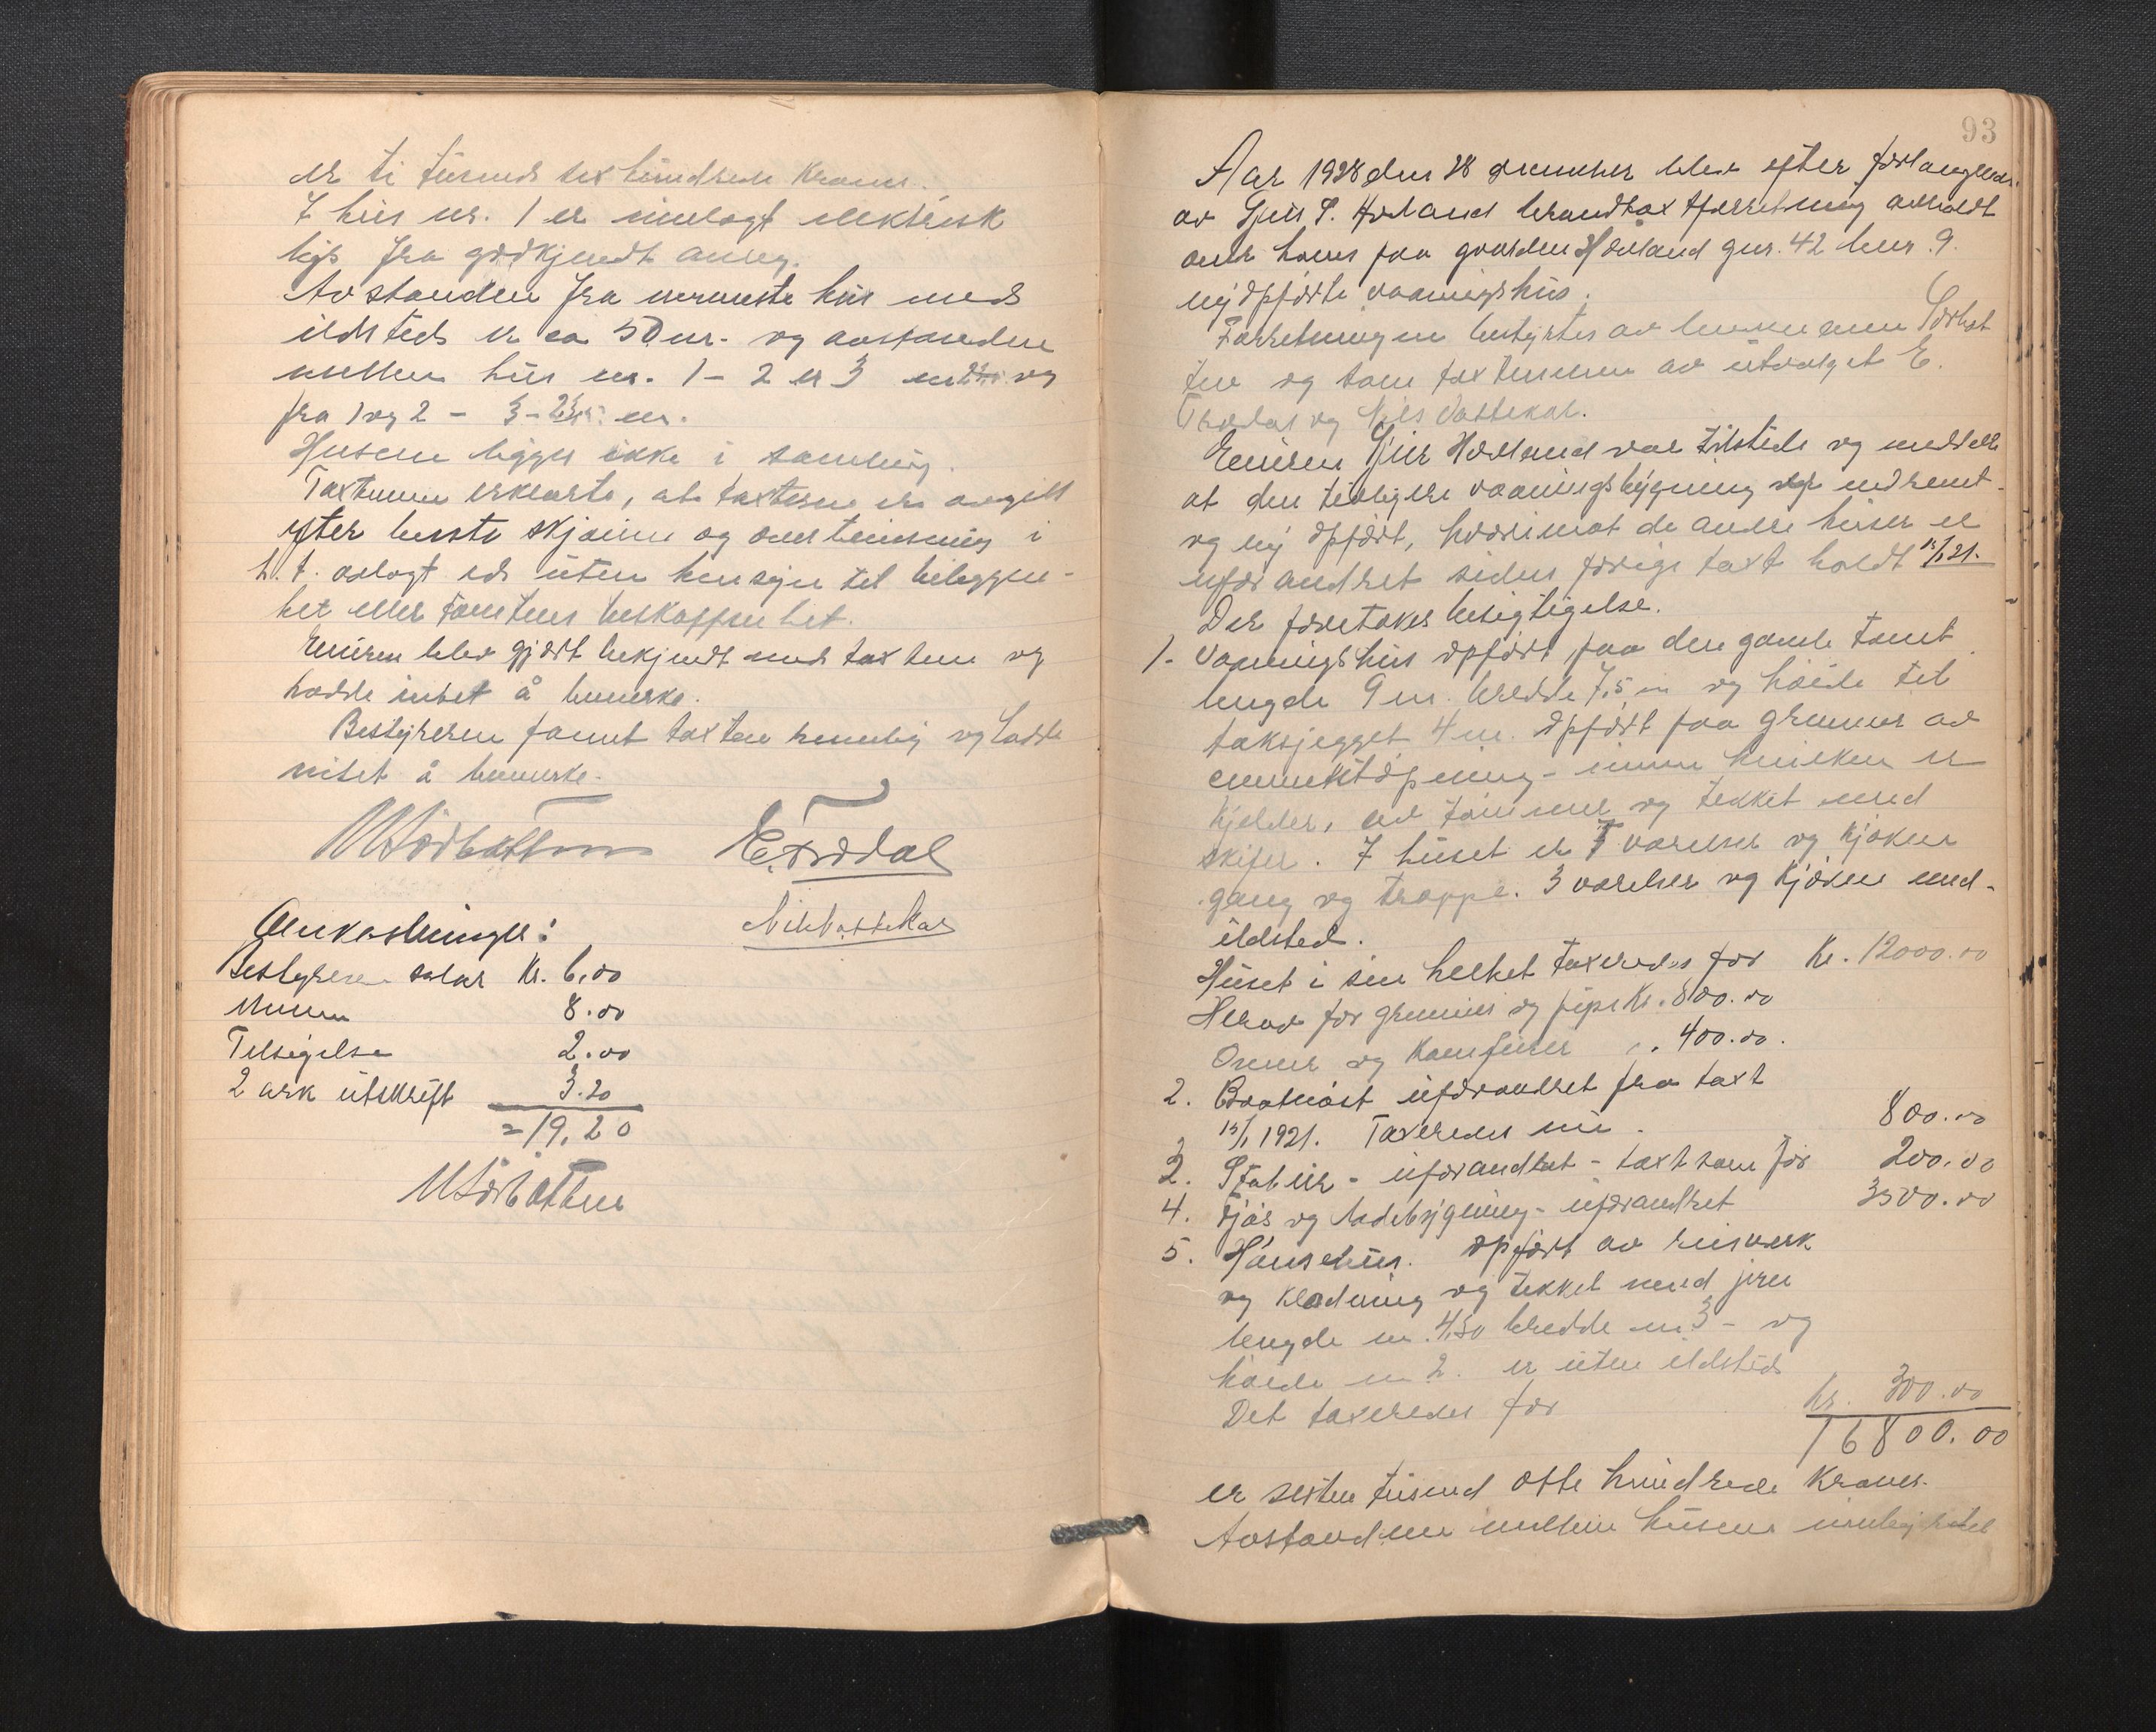 er ti tusend sexhundrede Kroner.
I hus nr. 1 er innlagt elektrisk
lys fra godkjendt anleg.
Avstanden fra nærmeste hus med
ildsted er ca 50 m. og avstanden
mellem hus nr. 1 - 2 er 3 m og
fra 1 og 2 - 3 - m.
Husene ligger ikke i samling.
Taxtmenn erklærte, at taxterne er avgitt
efter beste skjønn og overbevisning i
h. t. avlagt ed uten hensyn til beliggen-
het eller tomtens beskaffenhet.
Eieren blev gjort bekjendt med taxten og
hadde intet å bemerke.
Bestyreren fannt taxten rimelig og hadde
intet å bemerke.
E. Trodal
Nils Vattekar
Omkostninger:
Bestyreren salær Kr. 6,00
Mennene 8.00
Tilsigelse 2.00
2 ark utskrift 3.20
= 19,20
93
Aar 1928 den 28 december blev efter forlangende
av Gjert S. Hovland brandtaxtforretning avholdt
over hans paa gaarden Hovland gnr. 42 bnr. 9.
nyopførte vaaningshus.
Forretningen bestyrtes av lensmann Sørbøt
ten og som taxtmenn av utvalget E.
Trodal og Nils Vattekar.
Eieren Gjert Hovland var tilstede og meddelte
at den tidligere vaaningsbygning er nedrevet
og ny opført, hvorimot de andre huser er
uforandret siden forrige taxt holdt 15/1 21.
Der foretokes besigtigelse.
1. Vaaningshus opført paa den gamle tomt
lengde 9 m. bredde 7,5 m og høide til
takskjegget 4 m. opført paa grunnmur av
cementstøpning - innen hvilken er
kjelder, av tømmer og tekket med
skifer. I huset er 5 værelser og kjøken
gang og trappe. 3 værelser og kjøken med
ildsted.
Huset i sin helhet taxeredes for Kr. 12000.00
Herav for grunmur og pipe Kr. 800.00
Ovner og Komfurer " . 400.00.
2. Baatnøst uforandret fra taxt
15/1 1921. Taxeredes nu. 800.00
3. Stabur - uforandret - taxt som før 200.00
4. Fjøs og ladebygning - uforandret 3500.00
5. Hønsehus. opført av reisverk
og klædning og tekket med jern
lengde m. 4,50 bredde m 3 - og
høide m 2. er uten ildsted
Det taxeredes for kr. 300.00
16800.00
er seksten tusend otte hundrede Kroner.
Avstandene mellem husene